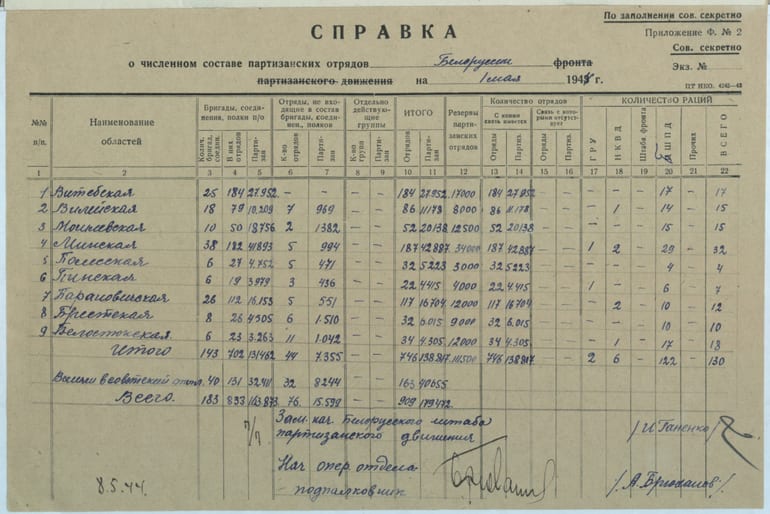 По заполнении сов. секретно
СПРАВКА
Приложение Ф. № 2
Сов. секретно
о численном составе партизанских отрядов Белоруссии фронта
Экз. №
партизанского движения на 1 мая 1944 г.
ЦТ НКО.
№№ п/п. Наименование областей Бригады, соединения, полки п/о Отряды, не входящие в состав бригады, соединен., полков Отдельно действующие группы ИТОГО Резервы партизанских отрядов Количество отрядов КОЛИЧЕСТВО РАЦИЙ
Колич. бригад, соедин. В них отрядов Партизан К-во отрядов Партизан К-во групп Партизан Отрядов Партизан С коими связь имеется Связь с которыми отсутствует ГРУ НКВД Штаба фронта БШПД Прочих ВСЕГО
Отряды Партиз. Отряды Партиз.
1 2 3 4 5 6 7 8 9 10 11 12 13 14 15 16 17 18 19 20 21 22
1 Витебская 25 184 27.952 – – – – 184 27.952 17000 184 27.952 – – – – – 17 – 17
2 Вилейская 18 79 10.209 7 969 – – 86 11178 8000 86 11.178 – – – 1 – 14 – 15
3 Могилевская 10 50 18756 2 1382 – – 52 20138 12500 52 20138 – – – – – 15 – 15
4 Минская 38 182 41893 5 994 – – 187 42887 34000 187 42887 – – 1 2 – 29 – 32
5 Полесская 6 27 4.752 5 471 – – 32 5223 3000 32 5223 – – – – – 4 – 4
6 Пинская 6 19 3979 3 436 – – 22 4415 4000 22 4.415 – – 1 – – 6 – 7
7 Барановичская 26 112 16.153 5 551 – – 117 16704 12000 117 16704 – – – 2 – 10 – 12
8 Брестская 8 26 4505 6 1.510 – – 32 6.015 9000 32 6.015 – – – – – 10 – 10
9 Белостокская 6 23 3.263 11 1.042 – – 34 4.305 12000 34 4.305 – – – 1 – 17 – 18
Итого 143 702 131462 44 7.355 – – 746 138.817 111500 746 138817 – – 2 6 – 122 – 130
Вышли в советский тыл 40 131 32411 32 8244 163 40655
Всего. 183 833 163.873 76 15.599 – – 909 179472
п/п Зам. нач. Белорусского штаба
партизанского движения /И. Ганенко/
Нач опер. отдела
подполковник /А. Брюханов/.
8.5.44.